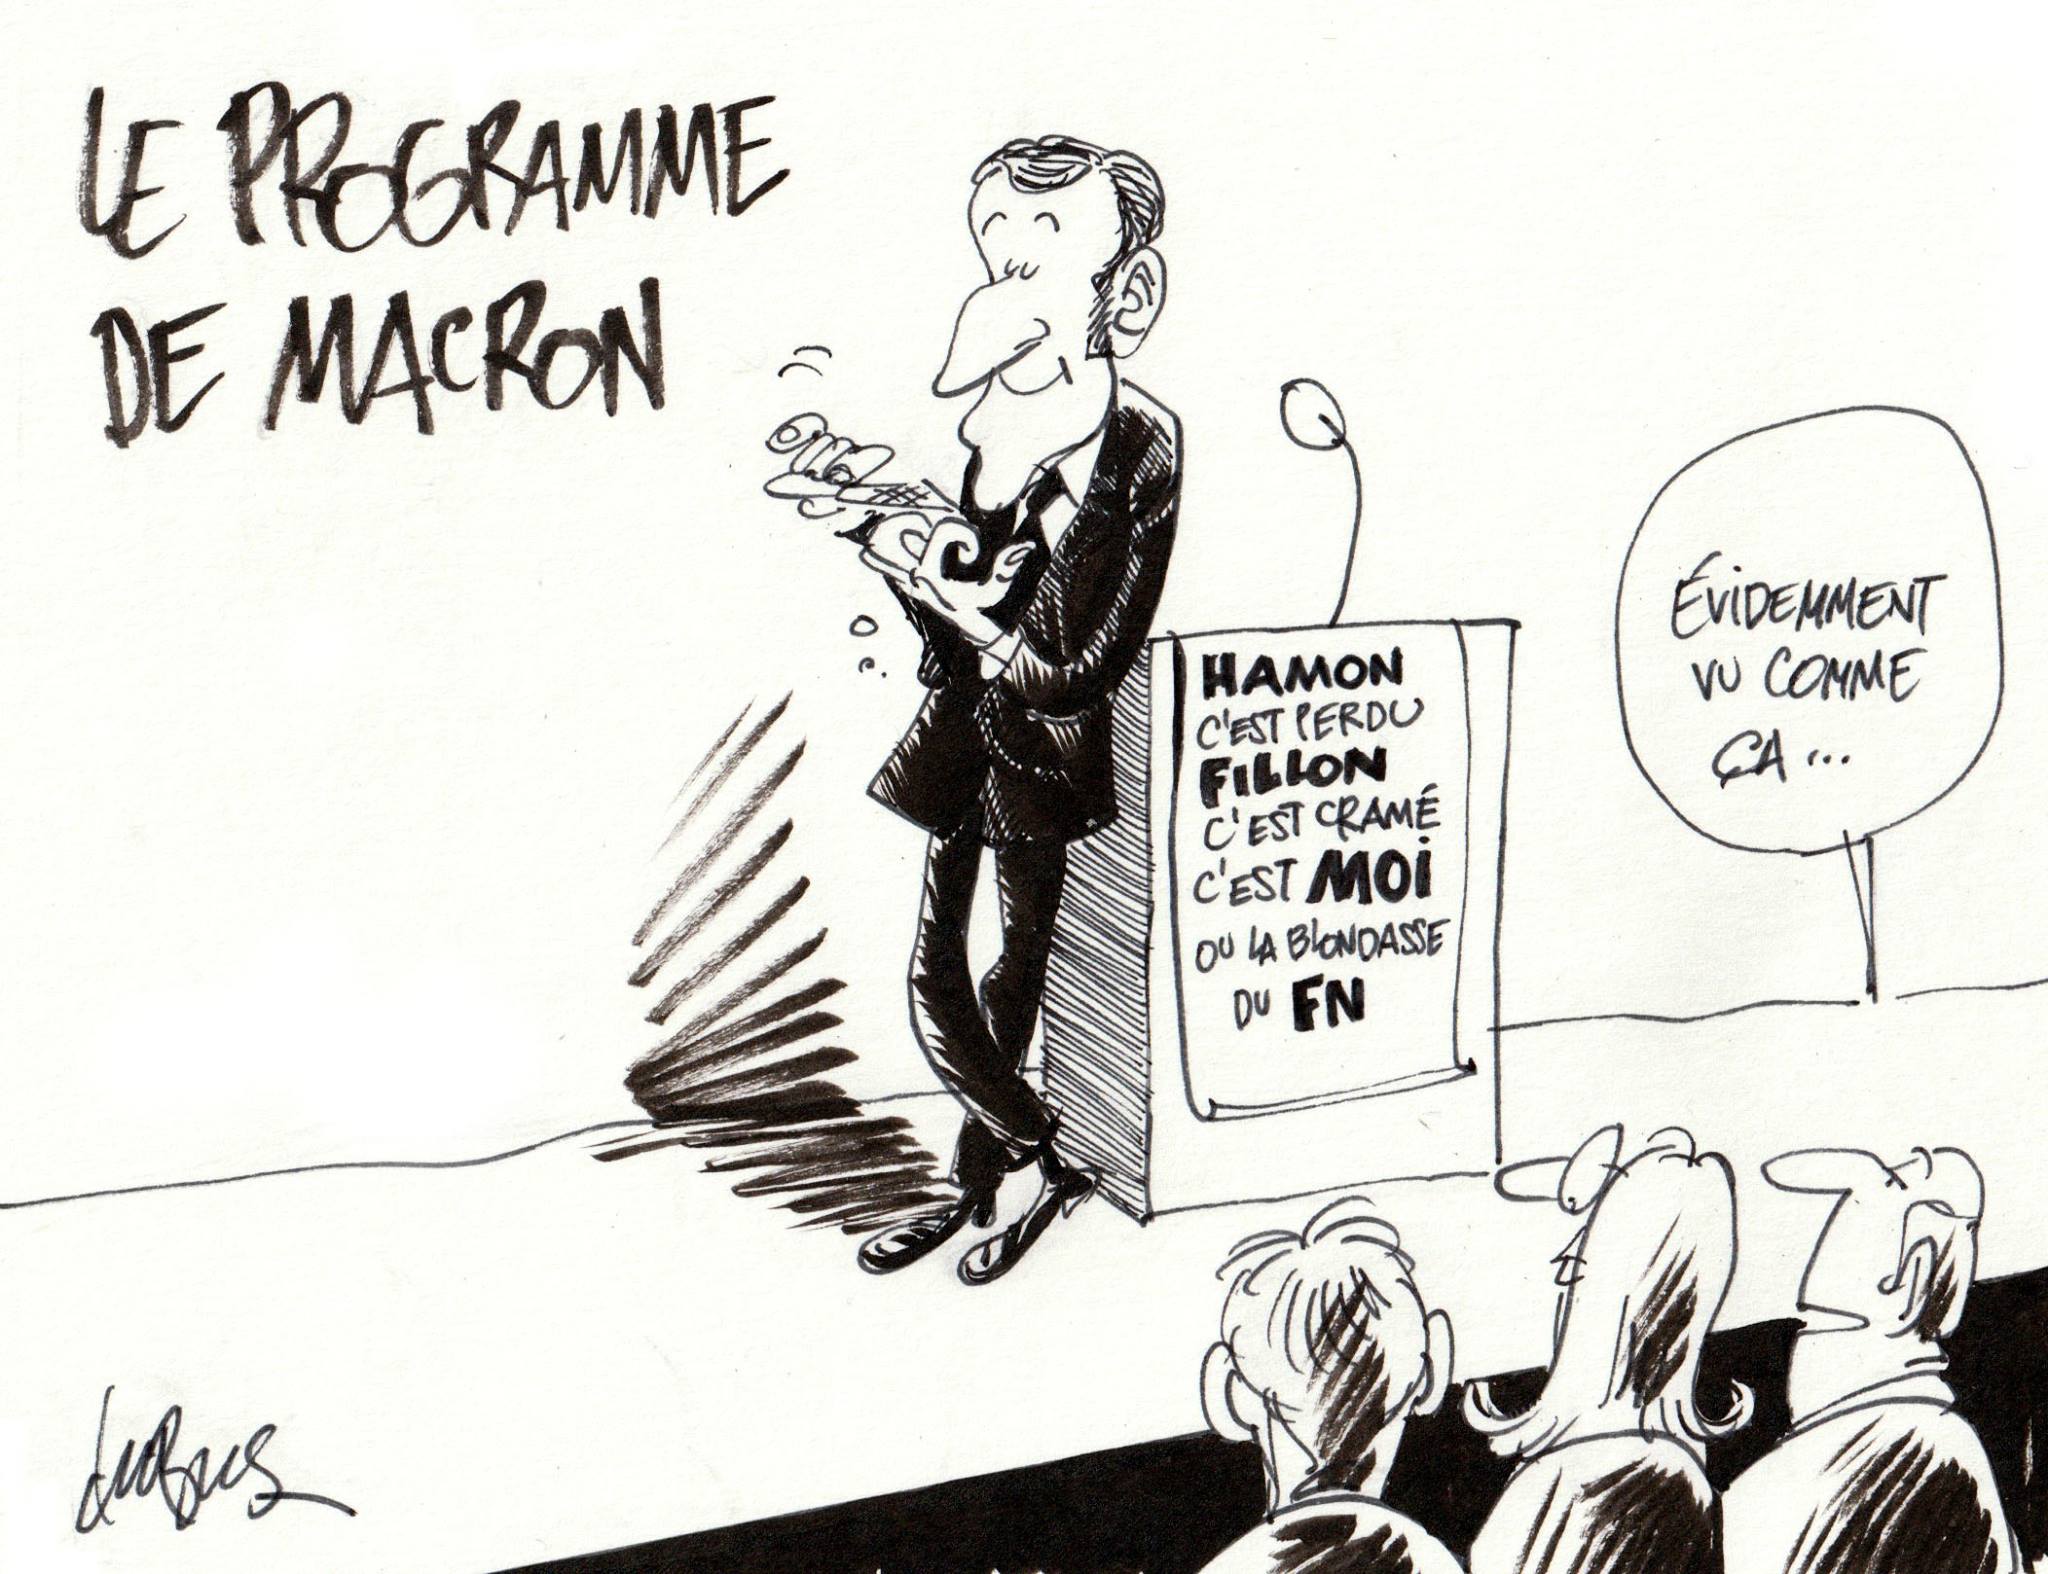 LE PROGRAMME
DE MACRON
HAMON
C'EST PERDU
FILLON
C'EST CRAMÉ
C'EST MOI
OU LA BLONDASSE
DU FN
ÉVIDEMMENT
VU COMME
ÇA...
dubus